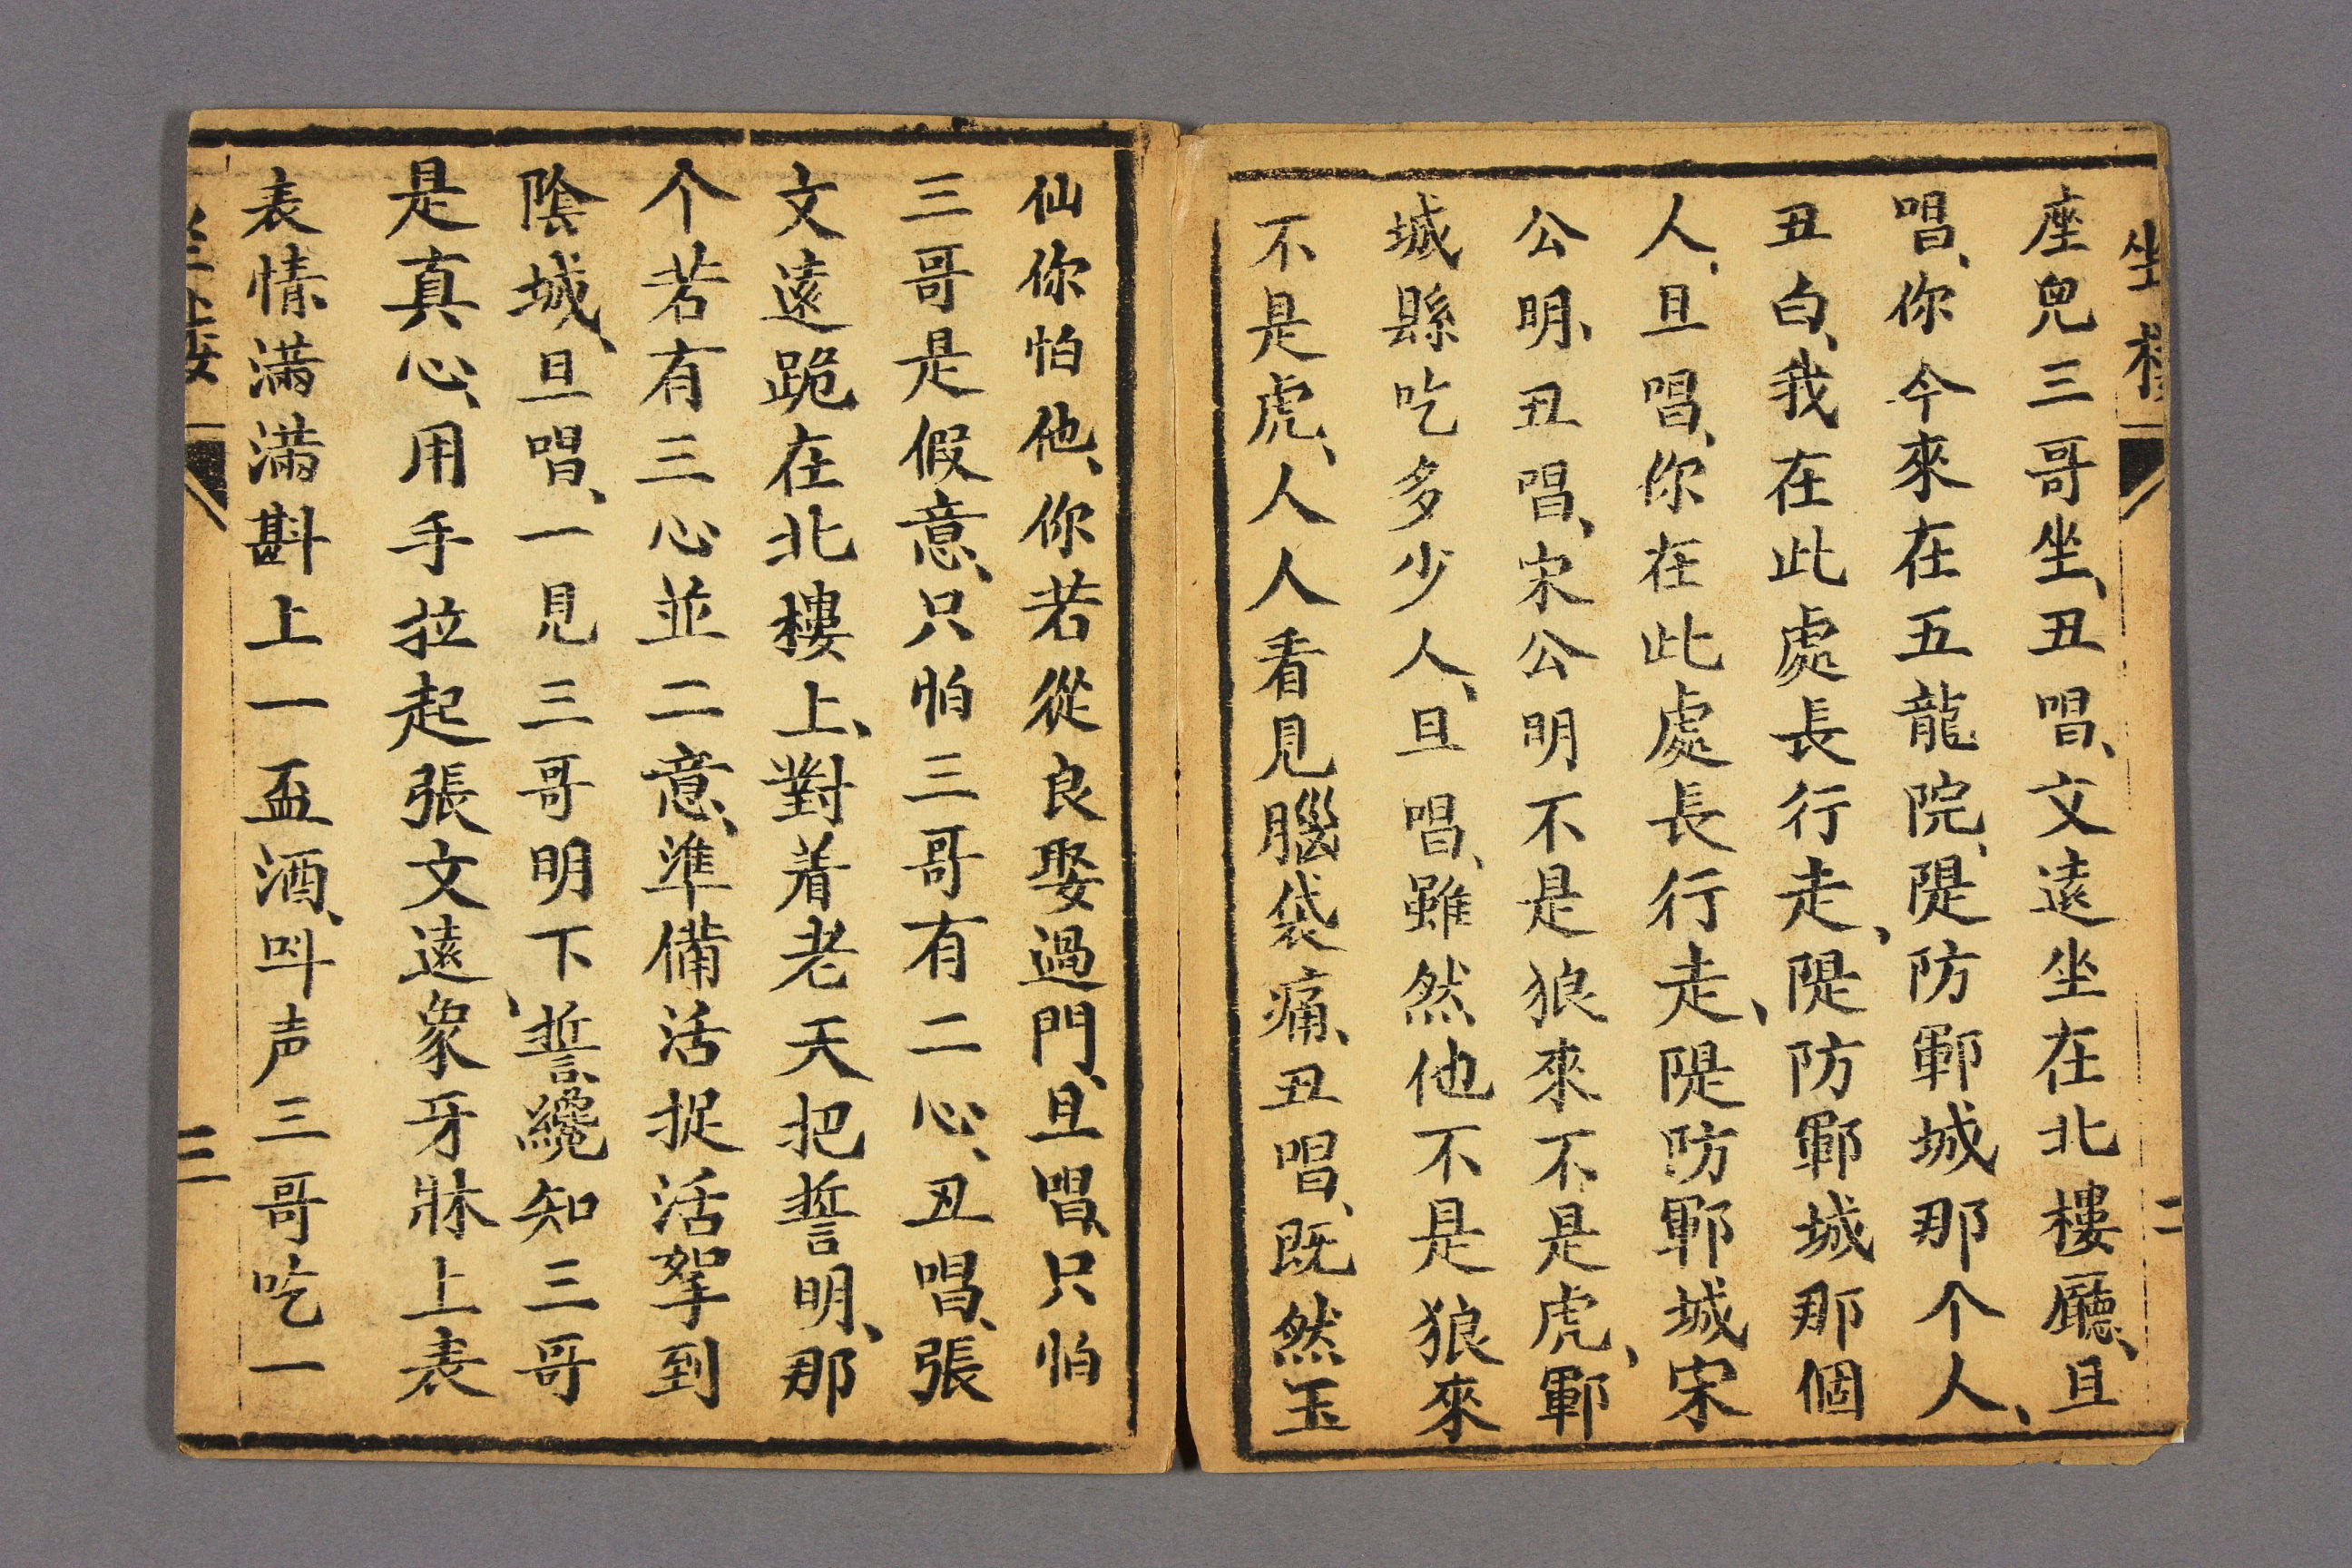 坐樓
二
座兒三哥坐、丑唱、文遠坐在北樓廳、旦
唱、你今來在五龍院、隄防鄆城那个人、
丑白、我在此處長行走、隄防鄆城那個
人、旦唱、你在此處長行走、隄防鄆城宋
公明、丑唱、宋公明不是狼來不是虎、鄆
城縣吃多少人、旦唱、雖然他不是狼來
不是虎、人人看見腦袋痛、丑唱、既然玉
仙你怕他、你若從良娶過門、旦唱、只怕
三哥是假意、只怕三哥有二心、丑唱、張
文遠跪在北樓上、對着老天把誓明、那
个若有三心並二意、準備活捉活拏到
陰城、旦唱、一見三哥明下、誓纔知三哥
是真心、用手拉起張文遠象牙牀上表
表情滿滿斟上一盃酒、呌声三哥吃一
坐樓
三